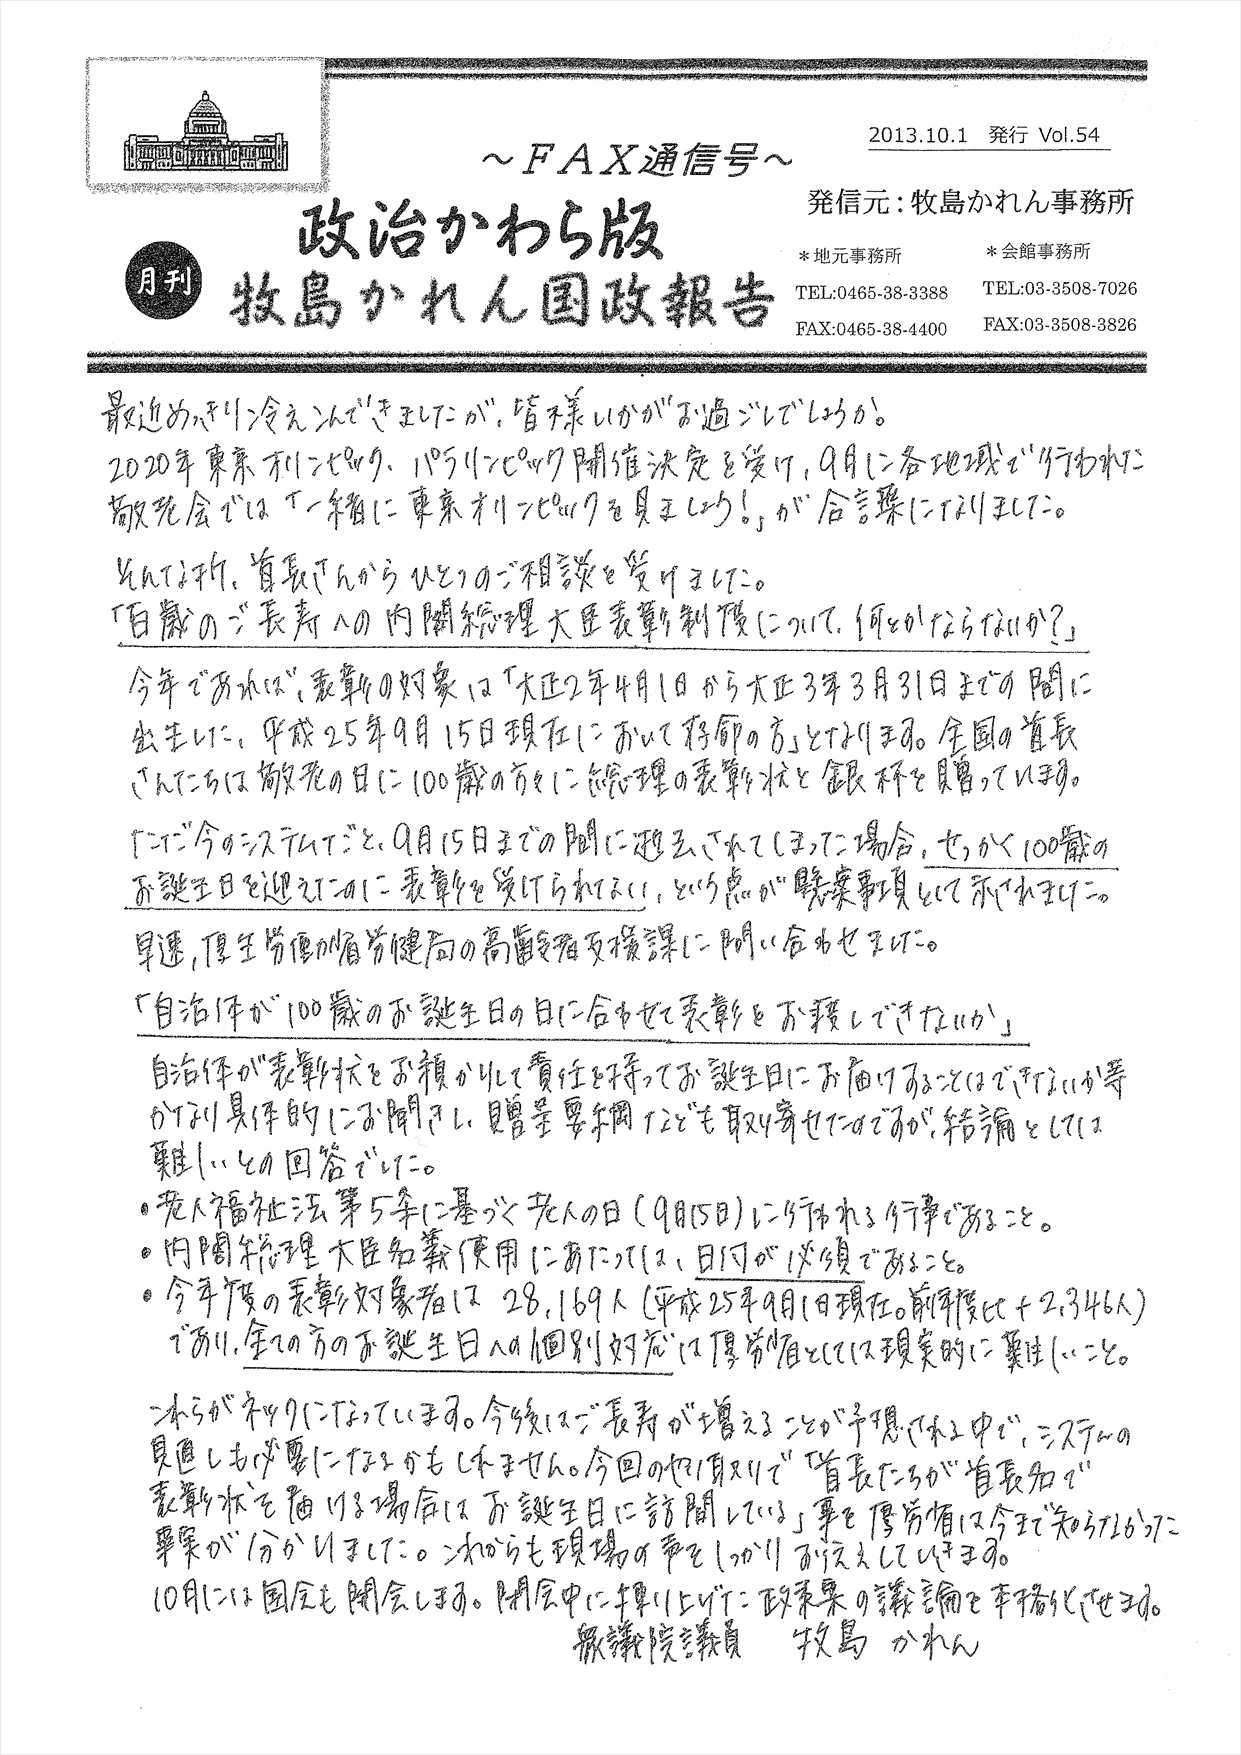 2013.10.1　発行 Vol.54
～ＦＡＸ通信号～
発信元：牧島かれん事務所
政治かわら版
月刊
牧島かれん国政報告
＊地元事務所
TEL:0465-38-3388
FAX:0465-38-4400
＊会館事務所
TEL:03-3508-7026
FAX:03-3508-3826
最近めっきり冷えこんできましたが、皆様いかがお過ごしでしょうか。
2020年東京オリンピック、パラリンピック開催決定を受け、9月に各地域で行われた
敬老会では「一緒に東京オリンピックを見ましょう!」が合言葉になりました。
そんな折、首長さんからひとつのご相談を受けました。
「百歳のご長寿への内閣総理大臣表彰制度について、何とかならないか?」
今年であれば、表彰の対象は「大正2年4月1日から大正3年3月31日までの間に
出生した、平成25年9月15日現在において存命の方」となります。全国の首長
さんたちは敬老の日に100歳の方々に総理の表彰状と銀杯を贈っています。
ただ今のシステムだと、9月15日までの間に逝去されてしまった場合、せっかく100歳の
お誕生日を迎えたのに表彰を受けられない、という点が懸案事項として示されました。
早速、厚生労働省老健局の高齢者支援課に問い合わせました。
「自治体が100歳のお誕生日の日に合わせて表彰をお渡しできないか」
自治体が表彰状をお預かりして責任を持ってお誕生日にお届けすることはできないか等
かなり具体的にお聞きし、贈呈要綱なども取り寄せたのですが、結論としては
難しいとの回答でした。
・老人福祉法第5条に基づく老人の日(9月15日)に行われる行事であること。
・内閣総理大臣名義使用にあたっては、日付が必須であること。
・今年度の表彰対象者は 28,169人(平成25年9月1日現在。前年度比+2,346人)
であり、全ての方のお誕生日への個別対応は厚労省としては現実的に難しいこと。
これらがネックになっています。今後はご長寿が増えることが予想される中で、システムの
見直しも必要になるかもしれません。今回のやり取りで「首長たちが首長名で
表彰状を届ける場合はお誕生日に訪問している」事を厚労省は今まで知らなかった
事実が分かりました。これからも現場の声をしっかりお伝えしていきます。
10月には国会も開会します。閉会中に練り上げた政策案の議論を本格化させます。
衆議院議員　牧島 かれん